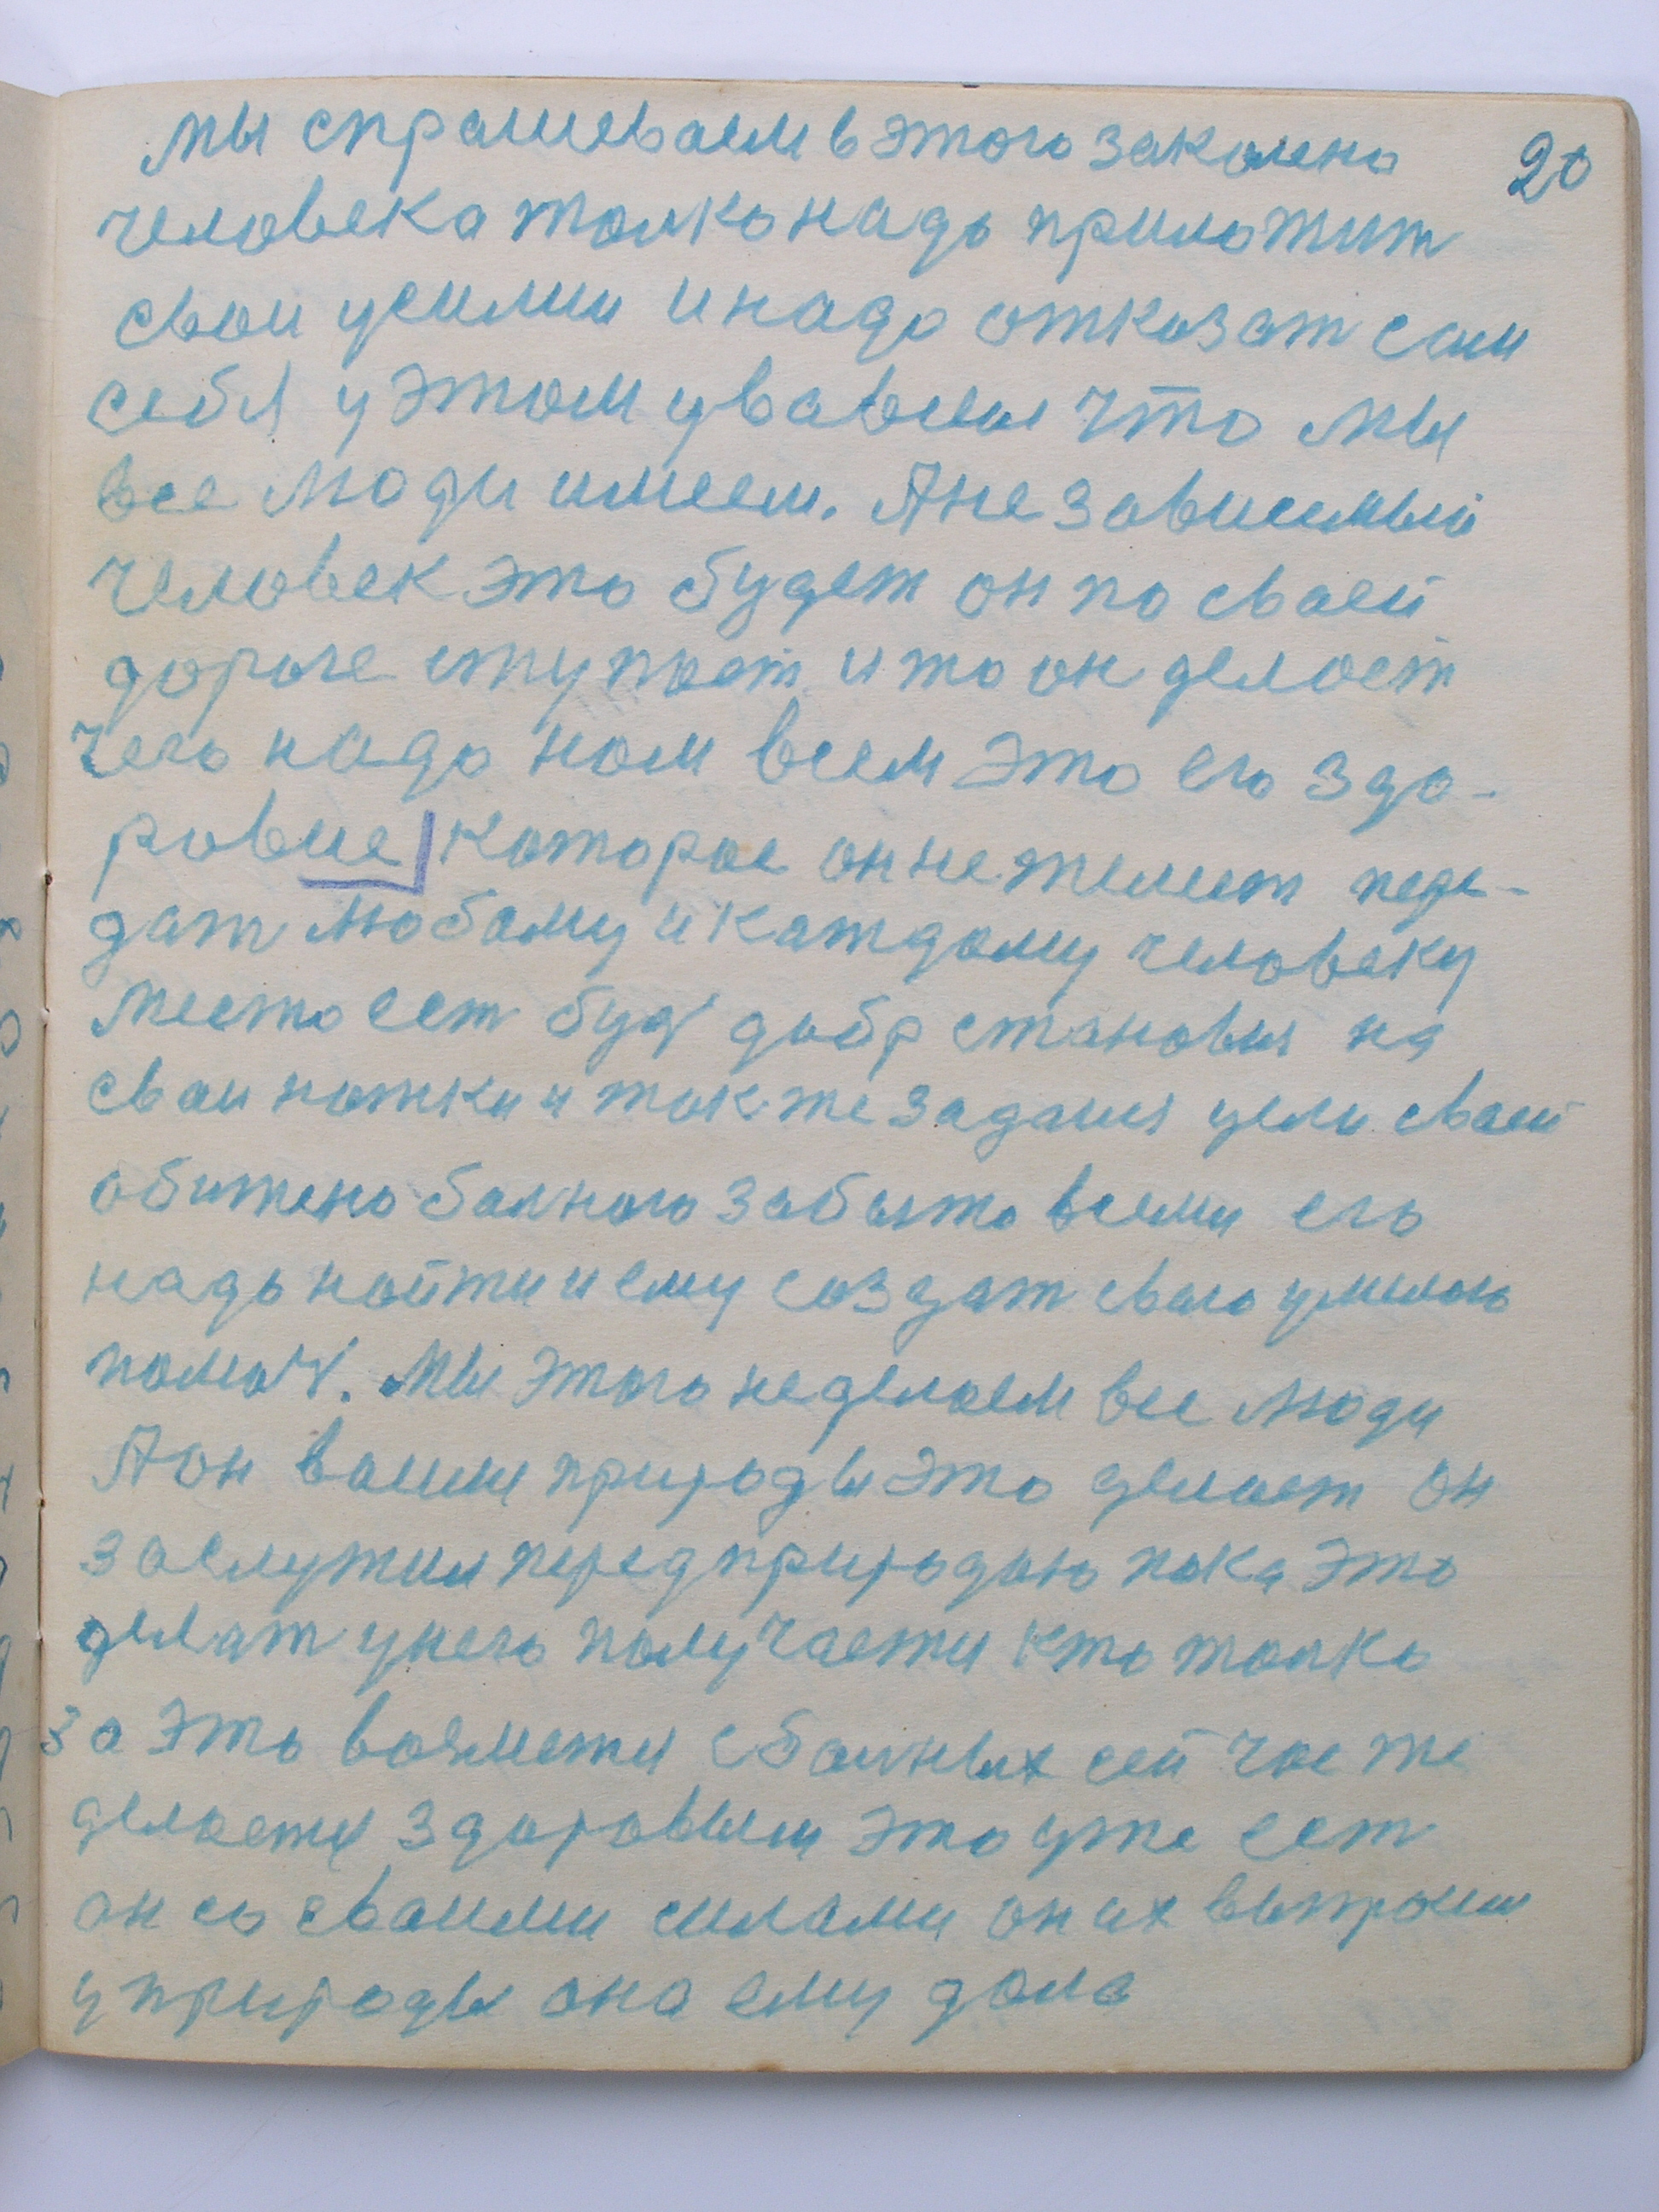 20
мы спрашеваем в этого закалено
человека толко надо приложит
свои усилии и надо отказат сам
себя у этом увавсем что мы
все люди имеем. А не зависимый
человек это будет он по сваей
дороге ступает и то он делает
чего надо нам всем это его здо-
ровие которое он не жалеет пере-
дат любому и каждому человеку
место ест буд добр становися на
сваи ножки и так же задайся цели сваей
обижено болного забыто всеми его
надо найти и ему создат сваю умилою
помоч. Мы этого не делаем все люди
А он ваимя природы это делает он
заслужил перед природою пока это
делат у него получается кто толко
за это возметя с болных сей час же
делается здоровым это уже ест
он со сваими силами он их выпросил
у природы она ему дала